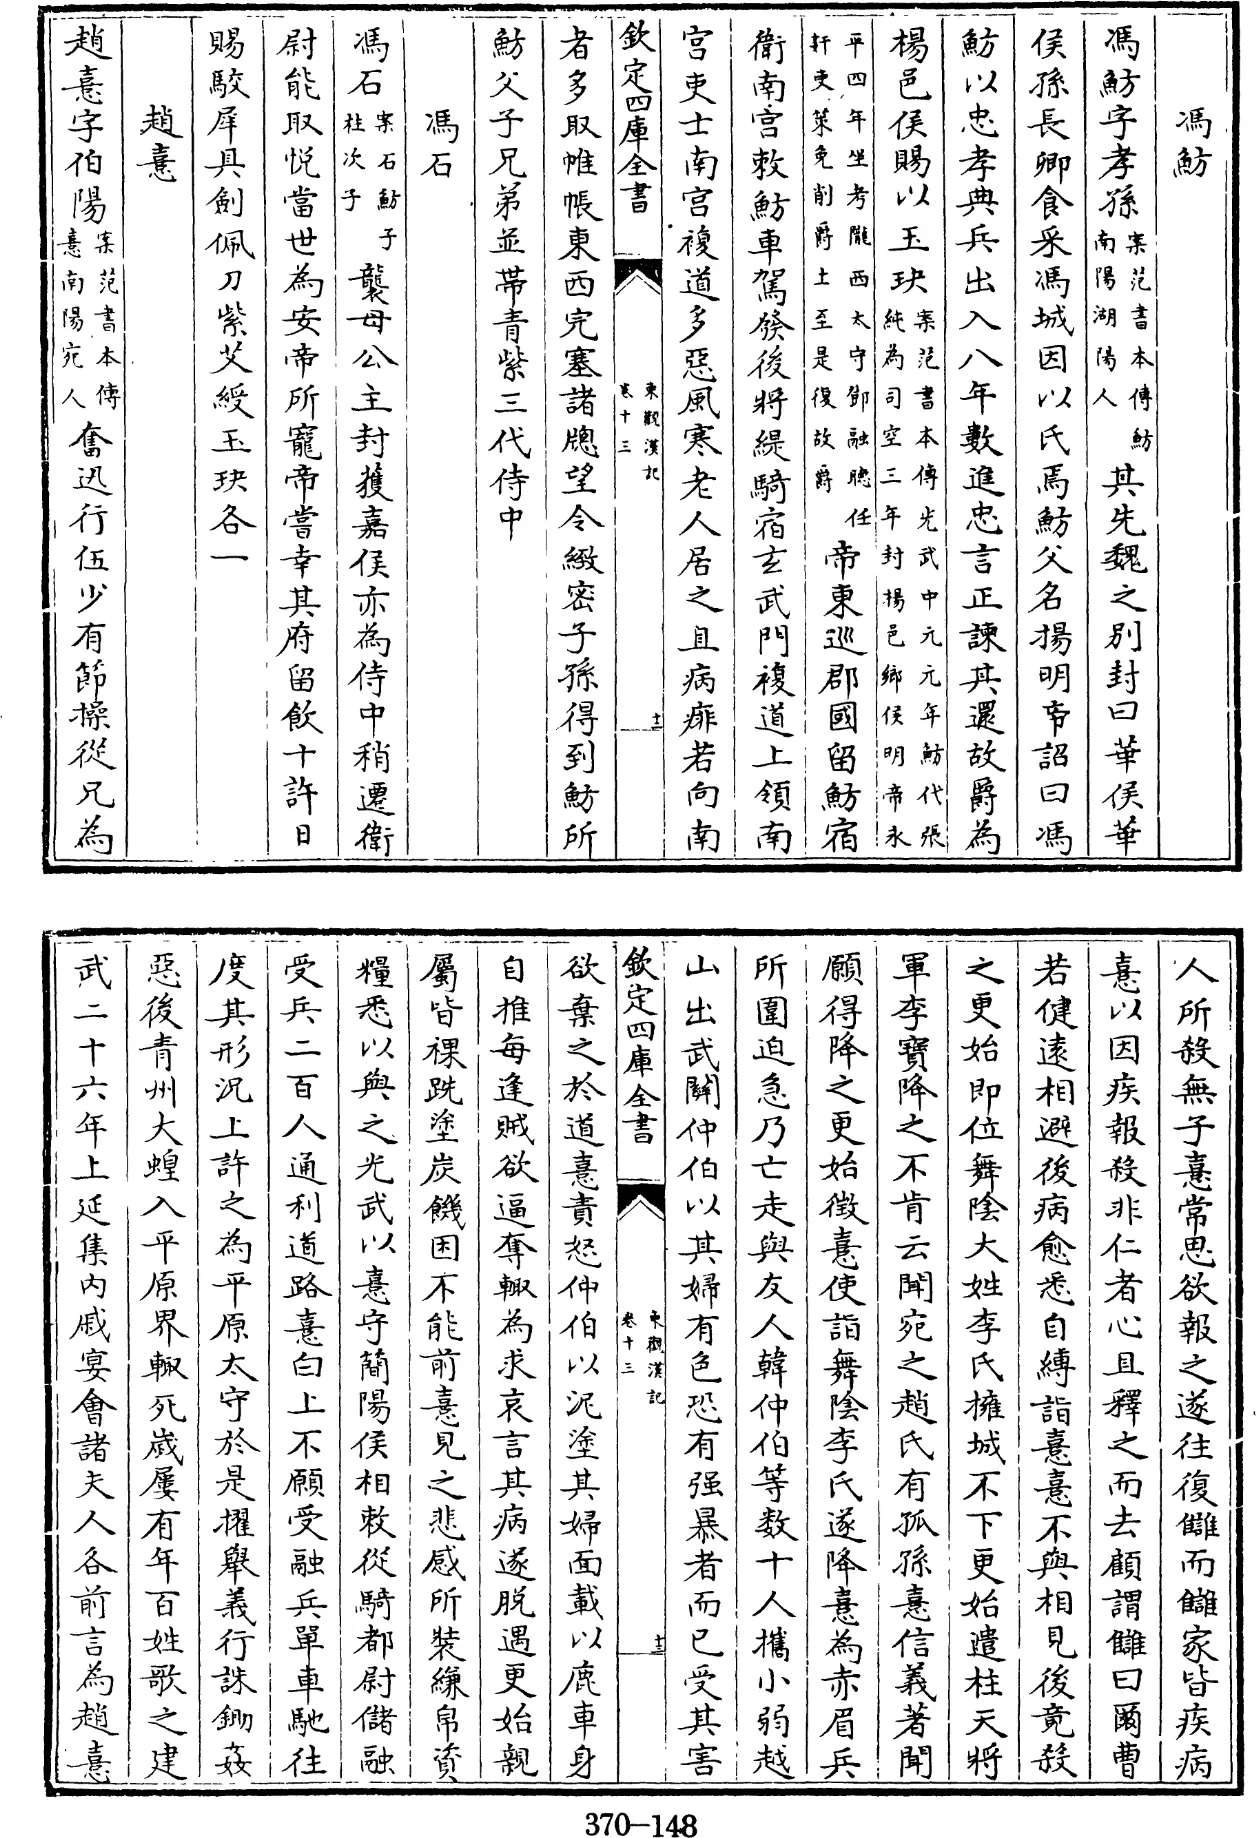 馮魴
馮魴字孝孫案范書本傳魴南陽湖陽人其先魏之別封曰華侯華
侯孫長卿食采馮城因以氏焉魴父名揚明帝詔曰馮
魴以忠孝典兵出入八年數進忠言正諫其還故爵為
楊邑侯賜以玉玦案范書本傳光武中元元年魴代張純為司空三年封揚邑鄉侯明帝永
平四年坐考隴西太守鄧融聽任奸吏策免削爵土至是復故爵帝東巡郡國留魴宿
衛南宫敕魴車駕發後將緹騎宿玄武門複道上領南
宫吏士南宫複道多惡風寒老人居之且病痱若向南
者多取帷帳東西完塞諸牕望令緻密子孫得到魴所
魴父子兄弟並帶青紫三代侍中
馮石
馮石案石魴子柱次子襲母公主封獲嘉侯亦為侍中稍遷衛
尉能取悅當世為安帝所寵帝嘗幸其府留飲十許日
賜駮犀具劍佩刀紫艾綬玉玦各一
趙憙
趙憙字伯陽案范書本傳憙南陽宛人奮迅行伍少有節操從兄為
欽定四庫全書
東觀漢記
卷十三
十二
人所殺無子憙常思欲報之遂往復讎而讎家皆疾病
憙以因疾報殺非仁者心且釋之而去顧謂讎曰爾曹
若健遠相避後病愈悉自縛詣憙憙不與相見後竟殺
之更始即位舞陰大姓李氏擁城不下更始遣柱天將
軍李寶降之不肯云聞宛之趙氏有孤孫憙信義著聞
願得降之更始徵憙使詣舞陰李氏遂降憙為赤眉兵
所圍迫急乃亡走與友人韓仲伯等数十人攜小弱越
山出武關仲伯以其婦有色恐有强暴者而已受其害
欲棄之於道憙責怒仲伯以泥塗其婦面載以鹿車身
自推每逢賊欲逼奪輙為求哀言其病遂脫遇更始親
屬皆裸跣塗炭饑困不能前憙見之悲感所裝縑帛資
糧悉以與之光武以憙守簡陽侯相敕從騎都尉儲融
受兵二百人通利道路憙白上不願受融兵單車馳往
度其形况上許之為平原太守於是擢舉義行誅鋤姦
惡後青州大蝗入平原界輙死歲屢有年百姓歌之建
武二十六年上延集内戚宴會諸夫人各前言為趙憙
欽定四庫全書
東觀漢記
卷十三
十三
370-148